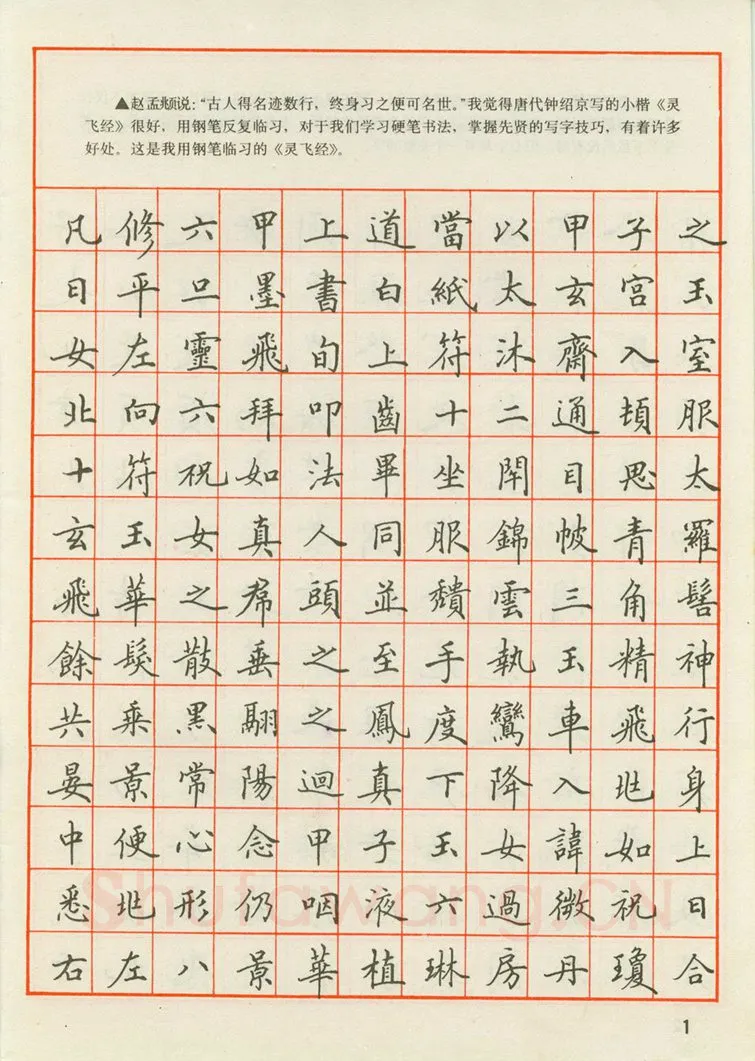 ▲赵孟頫说：“古人得名迹数行，终身习之便可名世。”我觉得唐代钟绍京写的小楷《灵
飞经》很好，用钢笔反复临习，对于我们学习硬笔书法，掌握先贤的写字技巧，有着许多
好处。这是我用钢笔临习的《灵飞经》。
凡修六甲上道當以甲子之
日平旦墨書白紙太玄宮玉
女左靈飛旬上符沐齋入室
北向六拜叩齒十二通頓服
十符祝如法畢坐閇目思太
玄玉女真人同服錦帔青羅
飛華之帬頭並頹雲三角髻
餘髮散垂之至手執玉精神
共乘黑翮之鳳度鸞車飛行
晏景常陽迴真下降入兆身
中便心念甲子玉女諱如上
悉兆形仍咽液六過微祝曰
右左八景華植琳房丹瓊合
Shufawang.CN
1